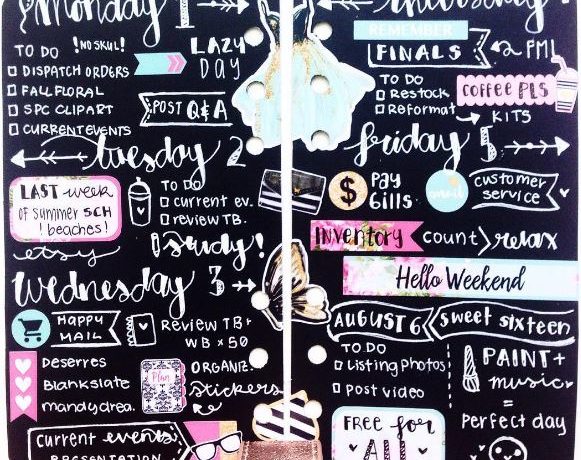 Monday 1
TO DO !NO SKUL! LAZY DAY
DISPATCH ORDERS
FALL FLORAL
SPC CLIPART
CURRENT EVENTS
POST Q&A
tuesday 2
LAST week
OF summer SCH
!beaches!
TO DO
current ev.
review TB.
etsy
!study!
wednesday 3
HAPPY
MAIL
Review TB+
WB x 50
Deserres
Blankslate
mandydrea.
Plan
ORGANIZ
Stickers
current events
PRESENTATION
thursday
REMEMBER
FINALS
2 PM!
TO DO
Restock
Reformat
KITS
COFFEE PLS
friday 5
$ PAY
bills.
mail
customer
service
Inventory count > relax
Hello Weekend
AUGUST 6 sweet sixteen
TO DO
Listing Photos
Post video
PAINT+
music
=
Perfect day
FREE for
ALL